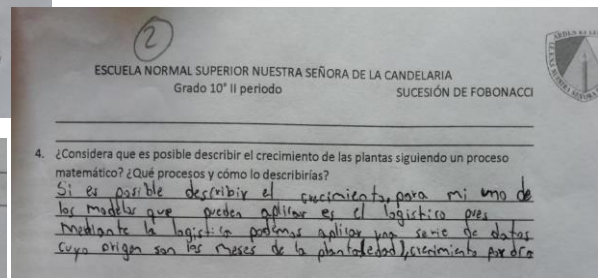 2
ESCUELA NORMAL SUPERIOR NUESTRA SEÑORA DE LA CANDELARIA
Grado 10° II periodo SUCESIÓN DE FOBONACCI
4. ¿Considera que es posible describir el crecimiento de las plantas siguiendo un proceso
matemático? ¿Qué procesos y cómo lo describirías?
Si es posible describir el crecimiento, para mi uno de
los modelos que pueden aplicar es el logistico pues
mediante la logistica podemos aplicar una serie de datos
cuyo origen son los meses de la planta(edad), crecimiento por dra